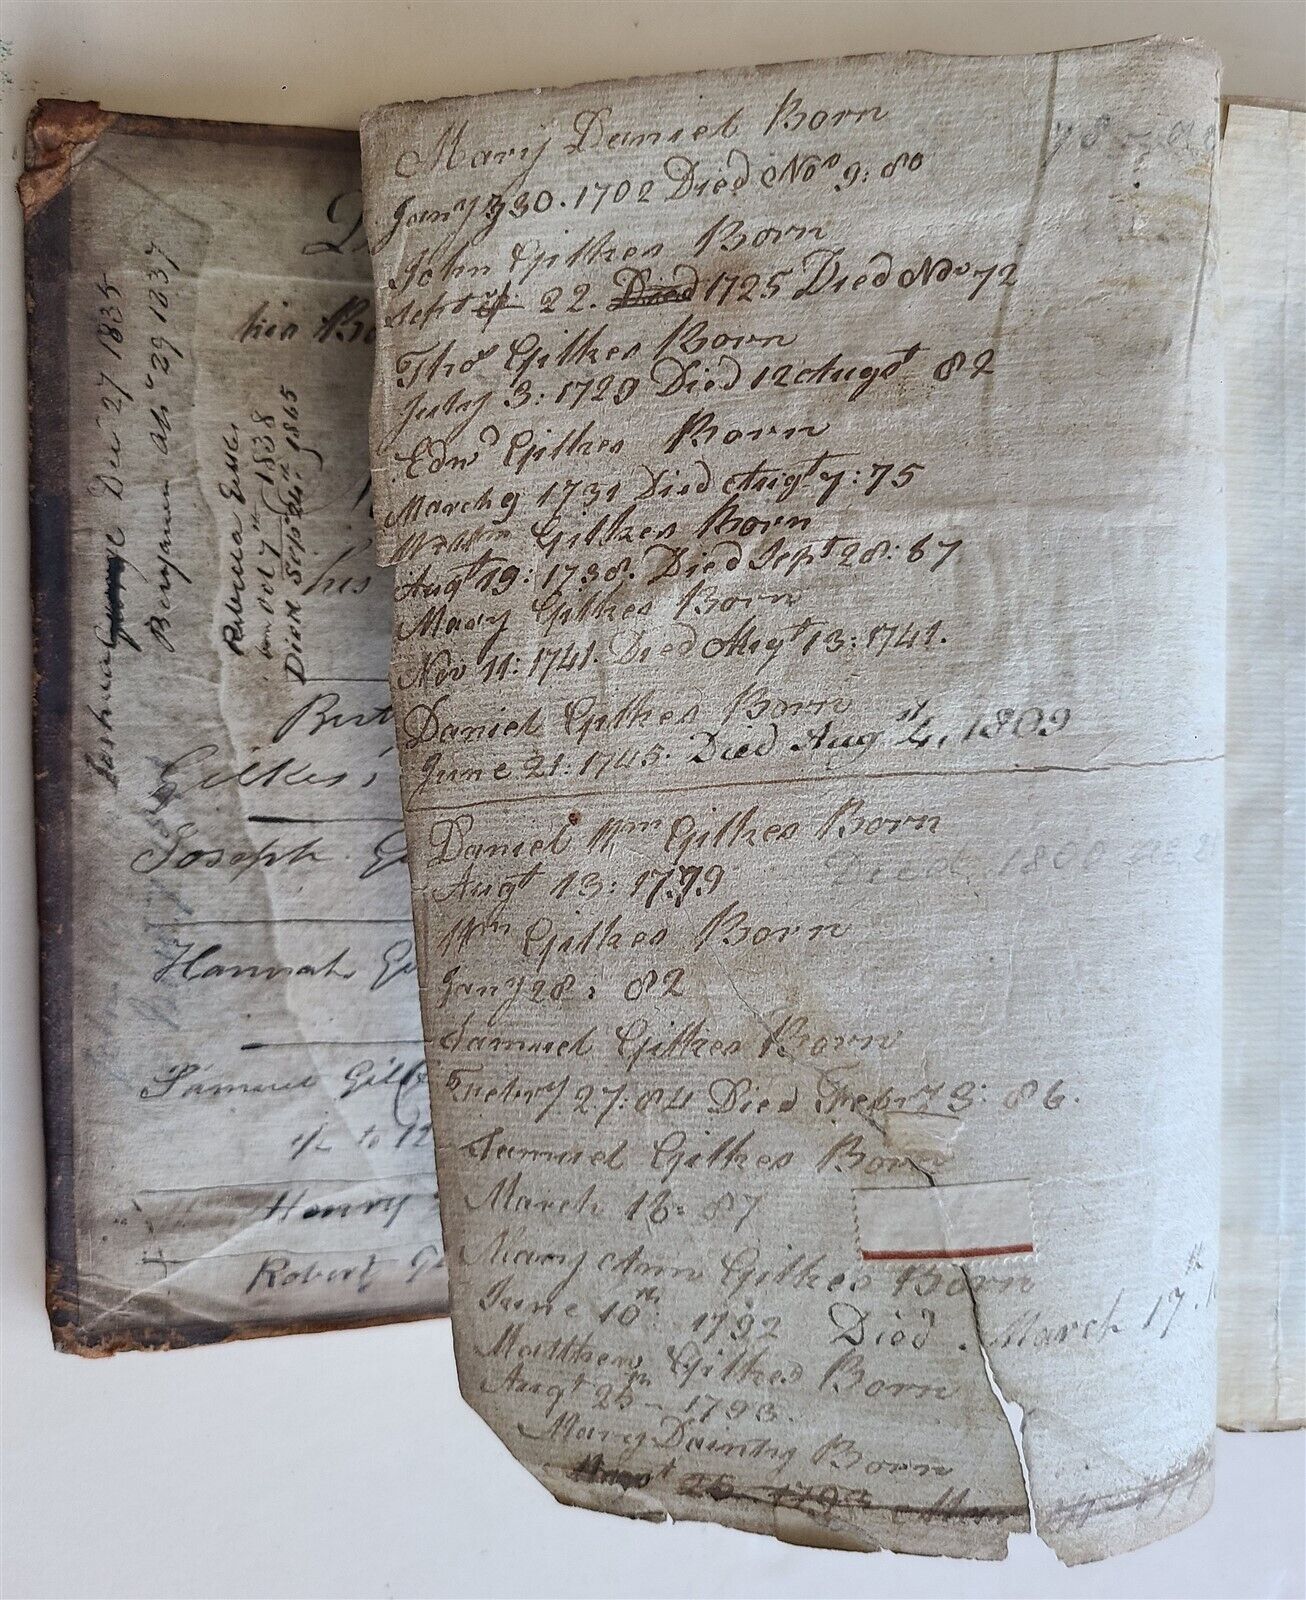 Mary Daniel Born
Jany 30. 1702 Died Nov 9: 80
John Gilkes Born
Sept 22. Died 1725 Died Nov 72
Thos Gilkes Born
July 3: 1729 Died 12 Augt 82
Edwd Gilkes Born
March 9 1731 Died Augt 7: 75
Willm Gilkes Born
Augt 19: 1738. Died Sept 28: 67
Mary Gilkes Born
Nov 11: 1741. Died Augt 13: 1741.
Daniel Gilkes Born
June 21: 1745. Died Aug 4, 1809
Daniel Wm Gilkes Born
Augt 13: 1779
Died 180
Wm Gilkes Born
Jany 28: 82
Samuel Gilkes Born
27: 84 Died Feby 3: 86.
Samuel Gilkes Born
March 16: 87
Mary Ann Gilkes Born
June 10th 1792 Died March 17th
Matthew Gilkes Born
Augt 25th 1793.
Mary Dainty Born
Augt 25 1793
Dec 27 1835
Benjamin 29 1837
born Oct 7th 1838
Died Sept 1865
his Bo
his
Birt
Gilkes
Joseph G
Hannah Gi
Samuel Gil
1/2 to 12
Henry
Robert G